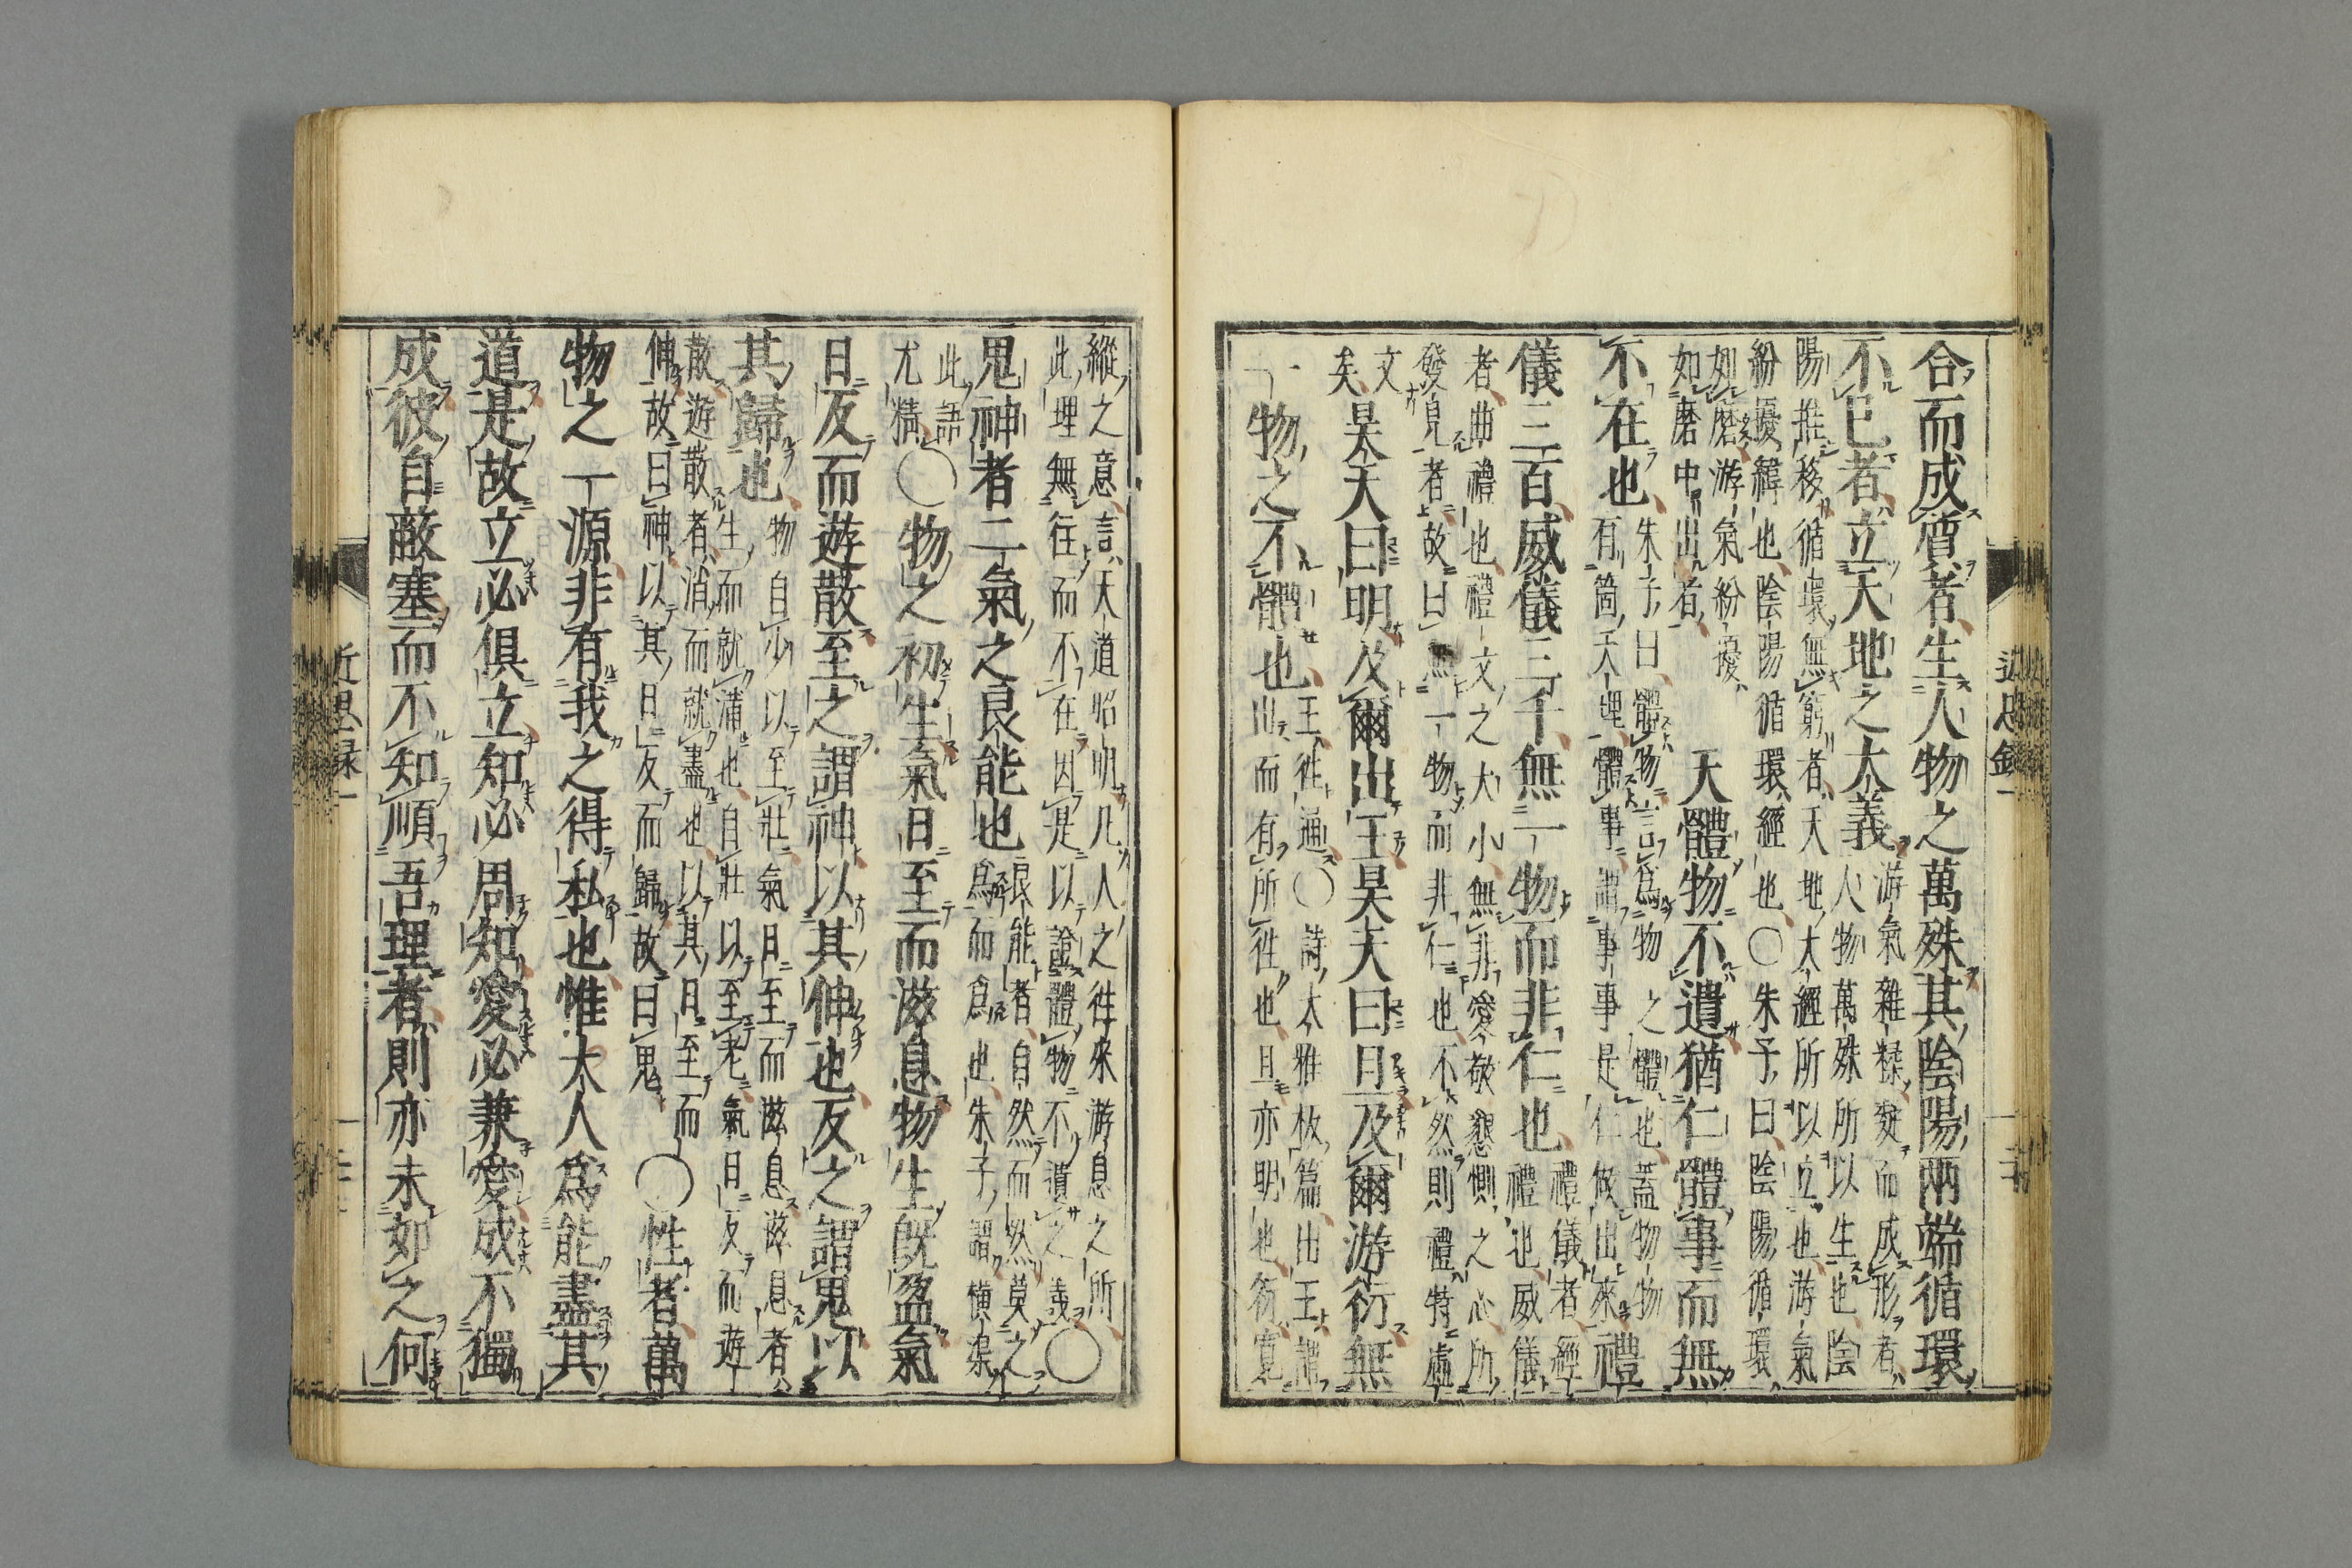 合而成質者生人物之萬殊其陰陽兩端循環
不已者立天地之大義
游氣雜糅凝而成形者
人物萬殊所以生也陰
陽推移循環無窮者天地大經所以立也游氣
紛擾緯也陰陽循環經也〇朱子曰陰陽循環
如磨游氣紛擾
如磨中出者
天體物不遺猶仁體事而無
不在也
朱子曰體物言爲物之體也蓋物物
有箇天理體事謂事事是仁做出來
禮
儀三百威儀三千無一物而非仁也
禮儀者經
禮也威儀
者曲禮也禮文之大小無非愛敬懇惻之心所
發見者故曰無一物而非仁也不然則禮特虛
文
矣
昊天曰明及爾出王昊天曰旦及爾游衍無
一物之不體也
王往通〇詩大雅板篇出王謂
出而有所往也旦亦明也衍寬
近思錄一
縱之意言天道昭明凡人之往來游息之所
此理無往而不在因是以證體物不遺之義
〇
鬼神者二氣之良能也
良能者自然而然莫之
爲而爲也朱子謂橫渠
此語
尤精
〇物之初生氣日至而滋息物生既盈氣
日反而遊散至之謂神以其伸也反之謂鬼以
其歸也
物自少以至壯氣日至而滋息滋息者
生而就滿也自壯以至老氣日反而遊
散遊散者消而就盡也以其日至而
伸故曰神以其日反而歸故曰鬼
〇性者萬
物之一源非有我之得私也惟大人爲能盡其
道是故立必俱立知必周知愛必兼愛成不獨
成彼自蔽塞而不知順吾理者則亦未如之何
近思錄一